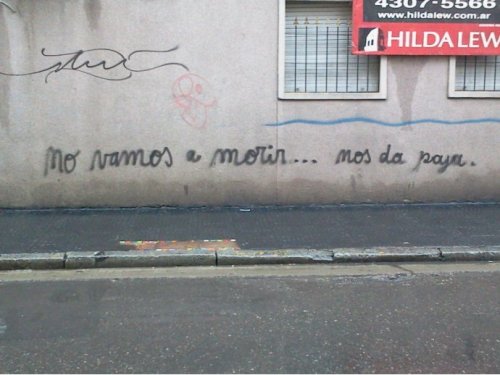 4307-5566
www.hildalew.com.ar
HILDA LEW
no vamos a morir... nos da paja.